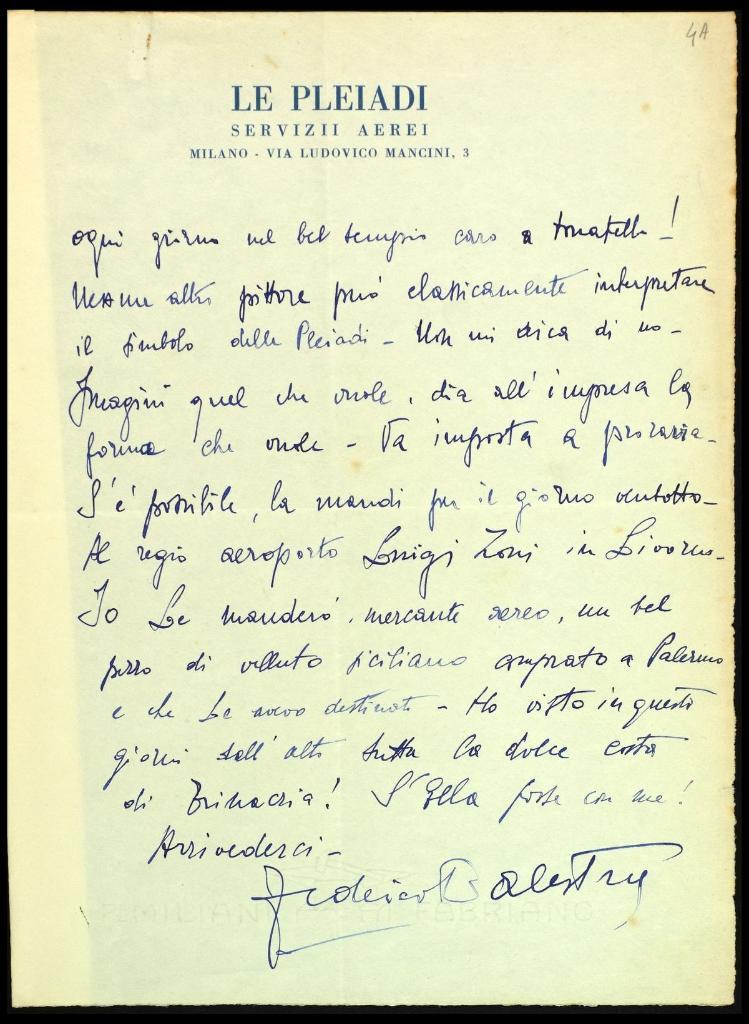 4A
LE PLEIADI
SERVIZII AEREI
MILANO - VIA LUDOVICO MANCINI, 3
ogni giorno nel bel tempio caro a Donatello!
Nessun altro pittore può classicamente interpretare
il simbolo delle Pleiadi - Non mi dica di no -
Imagini quel che vuole, dia all'impresa la
forma che vuole - Va imposta a
S'è possibile, la mandi per il giorno ventotto -
Al regio aeroporto Luigi Zoni in Livorno -
Io Le manderò, mercante aereo, un bel
pezzo di velluto siciliano comprato a Palermo
e che Le avevo destinato - Ho visto in questi
giorni dall'alto tutta la dolce costa
di Trinacria! S'Ella fosse con me!
Arrivederci -
Federico Balestra
FABRIANO